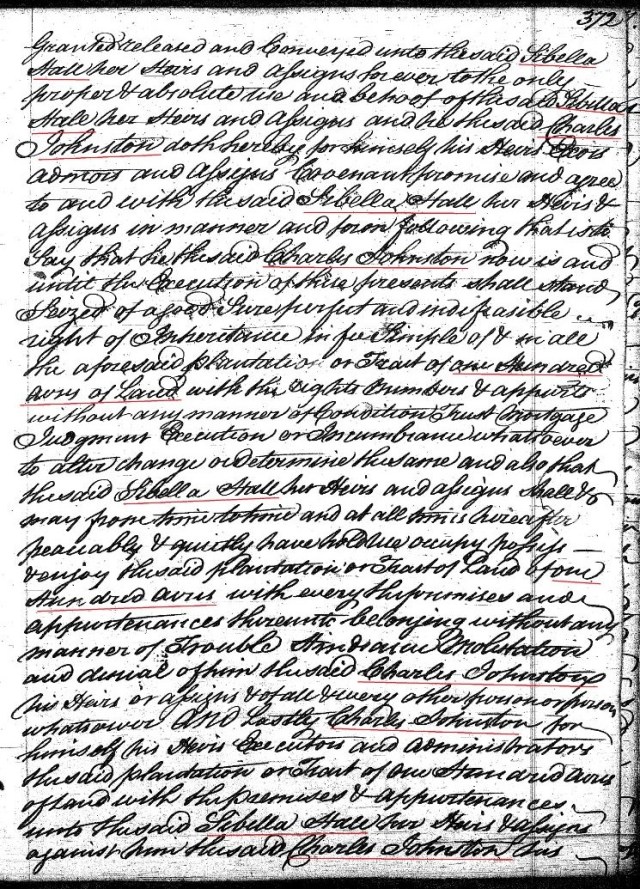 372
Granted released and Conveyed unto the said Sibella
Hall her Heirs and Assigns for ever to the only
proper & absolute use and behoof of the said Sibella
Hall her Heirs and Assigns and he the said Charles
Johnston doth hereby for himself his Heirs Exors
admors and Assigns Covenant promise and agree
to and with the said Sibella Hall her Heirs &
assigns in manner and form following that is to
Say that he the said Charles Johnston now is and
until the Execution of these presents shall Stand
Seized of a good Sure perfect and indefeasible
right of Inheritance in fee Simple of & in all
the aforesaid plantation or Tract of one Hundred
acres of Land with the rights members & appurts
without any manner of Condition Trust Mortgage
Judgment Execution or Incumbrance whatsoever
to alter change or determine the same and also that
the said Sibella Hall her Heirs and assigns shall &
may from time to time and at all times hereafter
peaceably & quietly have hold use occupy possess
& enjoy the said plantation or Tract of Land of one
Hundred acres with every the premises and
appurtenances thereunto belonging without any
manner of Trouble Hindrance Molestation
and denial of him the said Charles Johnston
his Heirs or assigns & of all & every other person or person
whatsoever and Lastly Charles Johnston for
himself his Heirs Executors and administrators
the said plantation or Tract of one Hundred acres
of Land with the premises & appurtenances
unto the said Sibella Hall her Heirs & assigns
against him the said Charles Johnston his